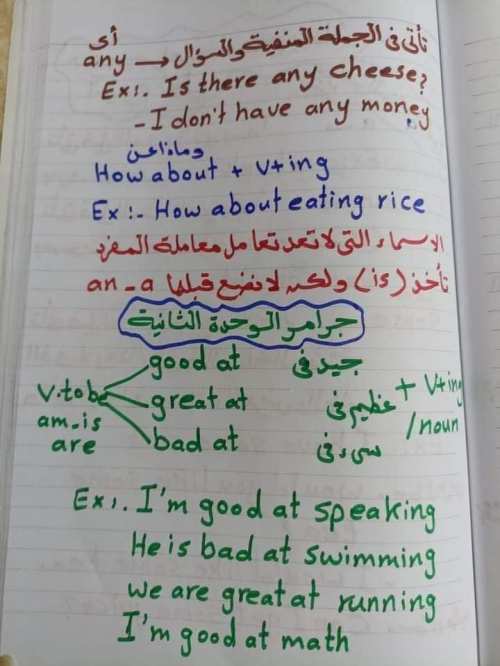 أى
any → تأتى فى الجملة المنفية والسؤال
Ex:. Is there any cheese?
- I don't have any money
وماذا عن
How about + v+ing
Ex :- How about eating rice
الاسماء التى لا تعد تعامل معاملة المفرد
تأخذ (is) ولكن لا نضع قبلها an - a
جرامر الوحدة الثانية
good at جيد فى
v.to be great at عظيم فى + v+ing
am - is /noun
are bad at سىء فى
Ex:. I'm good at speaking
He is bad at swimming
we are great at running
I'm good at math